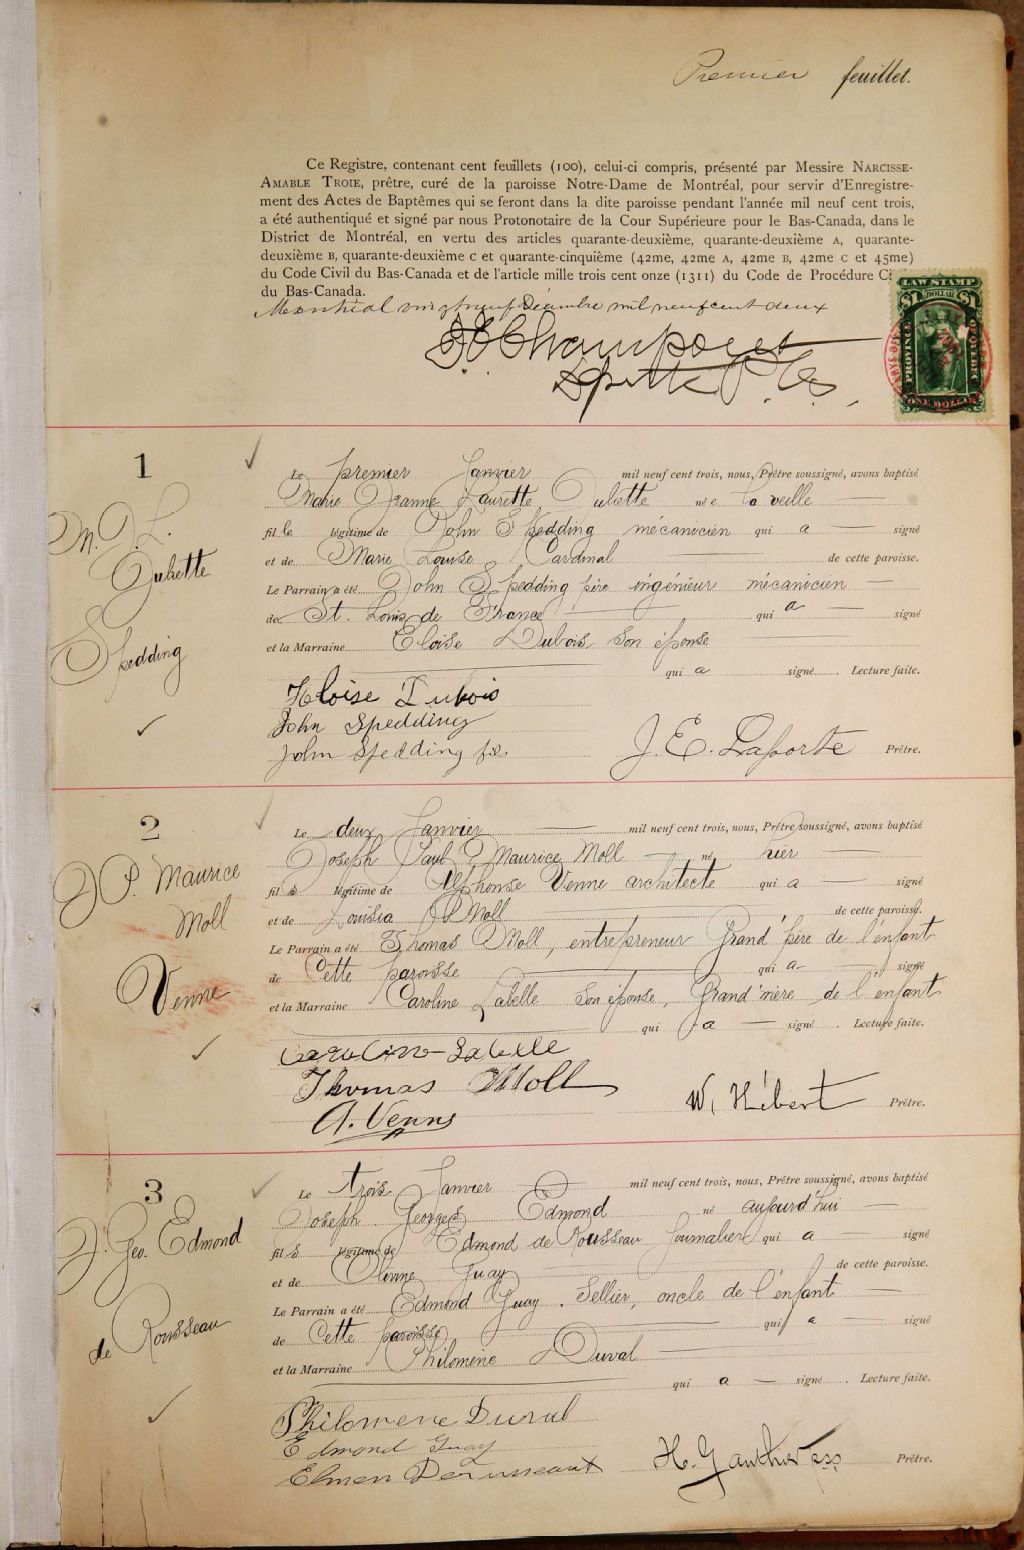 Premier feuillet.
Ce Registre, contenant cent feuillets (100), celui-ci compris, présenté par Messire NARCISSE-
AMABLE TROIE, prêtre, curé de la paroisse Notre-Dame de Montréal, pour servir d'Enregistre-
ment des Actes de Baptêmes qui se feront dans la dite paroisse pendant l'année mil neuf cent trois,
a été authentiqué et signé par nous Protonotaire de la Cour Supérieure pour le Bas-Canada, dans le
District de Montréal, en vertu des articles quarante-deuxième, quarante-deuxième A, quarante-
deuxième B, quarante-deuxième C et quarante-cinquième (42me, 42me A, 42me B, 42me C et 45me)
du Code Civil du Bas-Canada et de l'article mille trois cent onze (1311) du Code de Procédure
du Bas-Canada.
Montréal vingt neuf Décembre mil neuf cent deux
LAW STAMP
DOLLAR
PROVINCE OF QUEBEC
ONE DOLLAR
1
Le premier Janvier mil neuf cent trois, nous, Prêtre soussigné, avons baptisé
Marie Jeanne Laurette Juliette née la veille
M. J. L.
fille légitime de John Spedding mécanicien qui a signé
Juliette
et de Marie Louise Cardinal de cette paroisse.
Le Parrain a été John Spedding père ingénieur mécanicien
de St. Louis de France qui a signé
et la Marraine Eloise Dubois son épouse
Spedding
qui a signé Lecture faite.
Heloise Dubois
John Spedding
John Spedding fils J. E. Laporte Prêtre.
2
Le deux Janvier mil neuf cent trois, nous, Prêtre soussigné, avons baptisé
Joseph Paul Maurice Moll né hier
J P. Maurice
fils légitime de Alphonse Venne architecte qui a signé
Moll
et de Louisia Moll de cette paroisse.
Le Parrain a été Thomas Moll, entrepreneur Grand'père de l'enfant
de Cette paroisse qui a signé
Venne
et la Marraine Caroline Labelle son épouse, Grand'mère de l'enfant
qui a signé Lecture faite.
Caroline Labelle
Thomas Moll
A. Venne W. Hébert Prêtre.
3
Le trois Janvier mil neuf cent trois, nous, Prêtre soussigné, avons baptisé
Joseph Georges Edmond né aujourd'hui
J. Geo. Edmond
fils légitime de Edmond de Rousseau Journalier qui a signé
et de Guay de cette paroisse.
Le Parrain a été Edmond Guay. Sellier, oncle de l'enfant
de Cette paroisse qui a signé
de Rousseau
et la Marraine Philomène Duval
qui a signé Lecture faite.
Philomene Duval
Edmond Guay
H. Gauthier pss Prêtre.